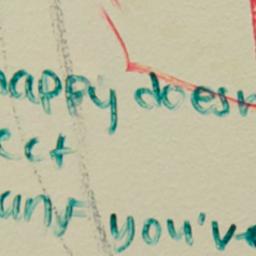 happy doesn
ect
you've